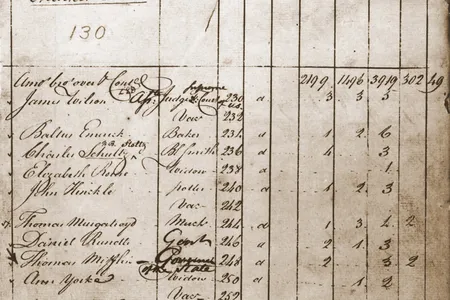 130
Amt bro't over 2199 1496 3919 302 49
James Wilson Judge Supreme Court 230 a 3 3 5
Vac 232
Baltus Emrick Baker 234 a 1 2 6
Charles Schultz Bl Smith 236 a 4 3
Elizabeth Widow 238 a 1
John Hinckle potter 240 a 1 2 3
Vac 242
Thomas Murgatroyd March 244 a 1 3 4 2
Daniel Rundle Gent 246 a 2 1 3
Thomas Mifflin Governor of the State 248 a 2 3 2
Ann Yorke Widow 250 a 1 2
Vac 252